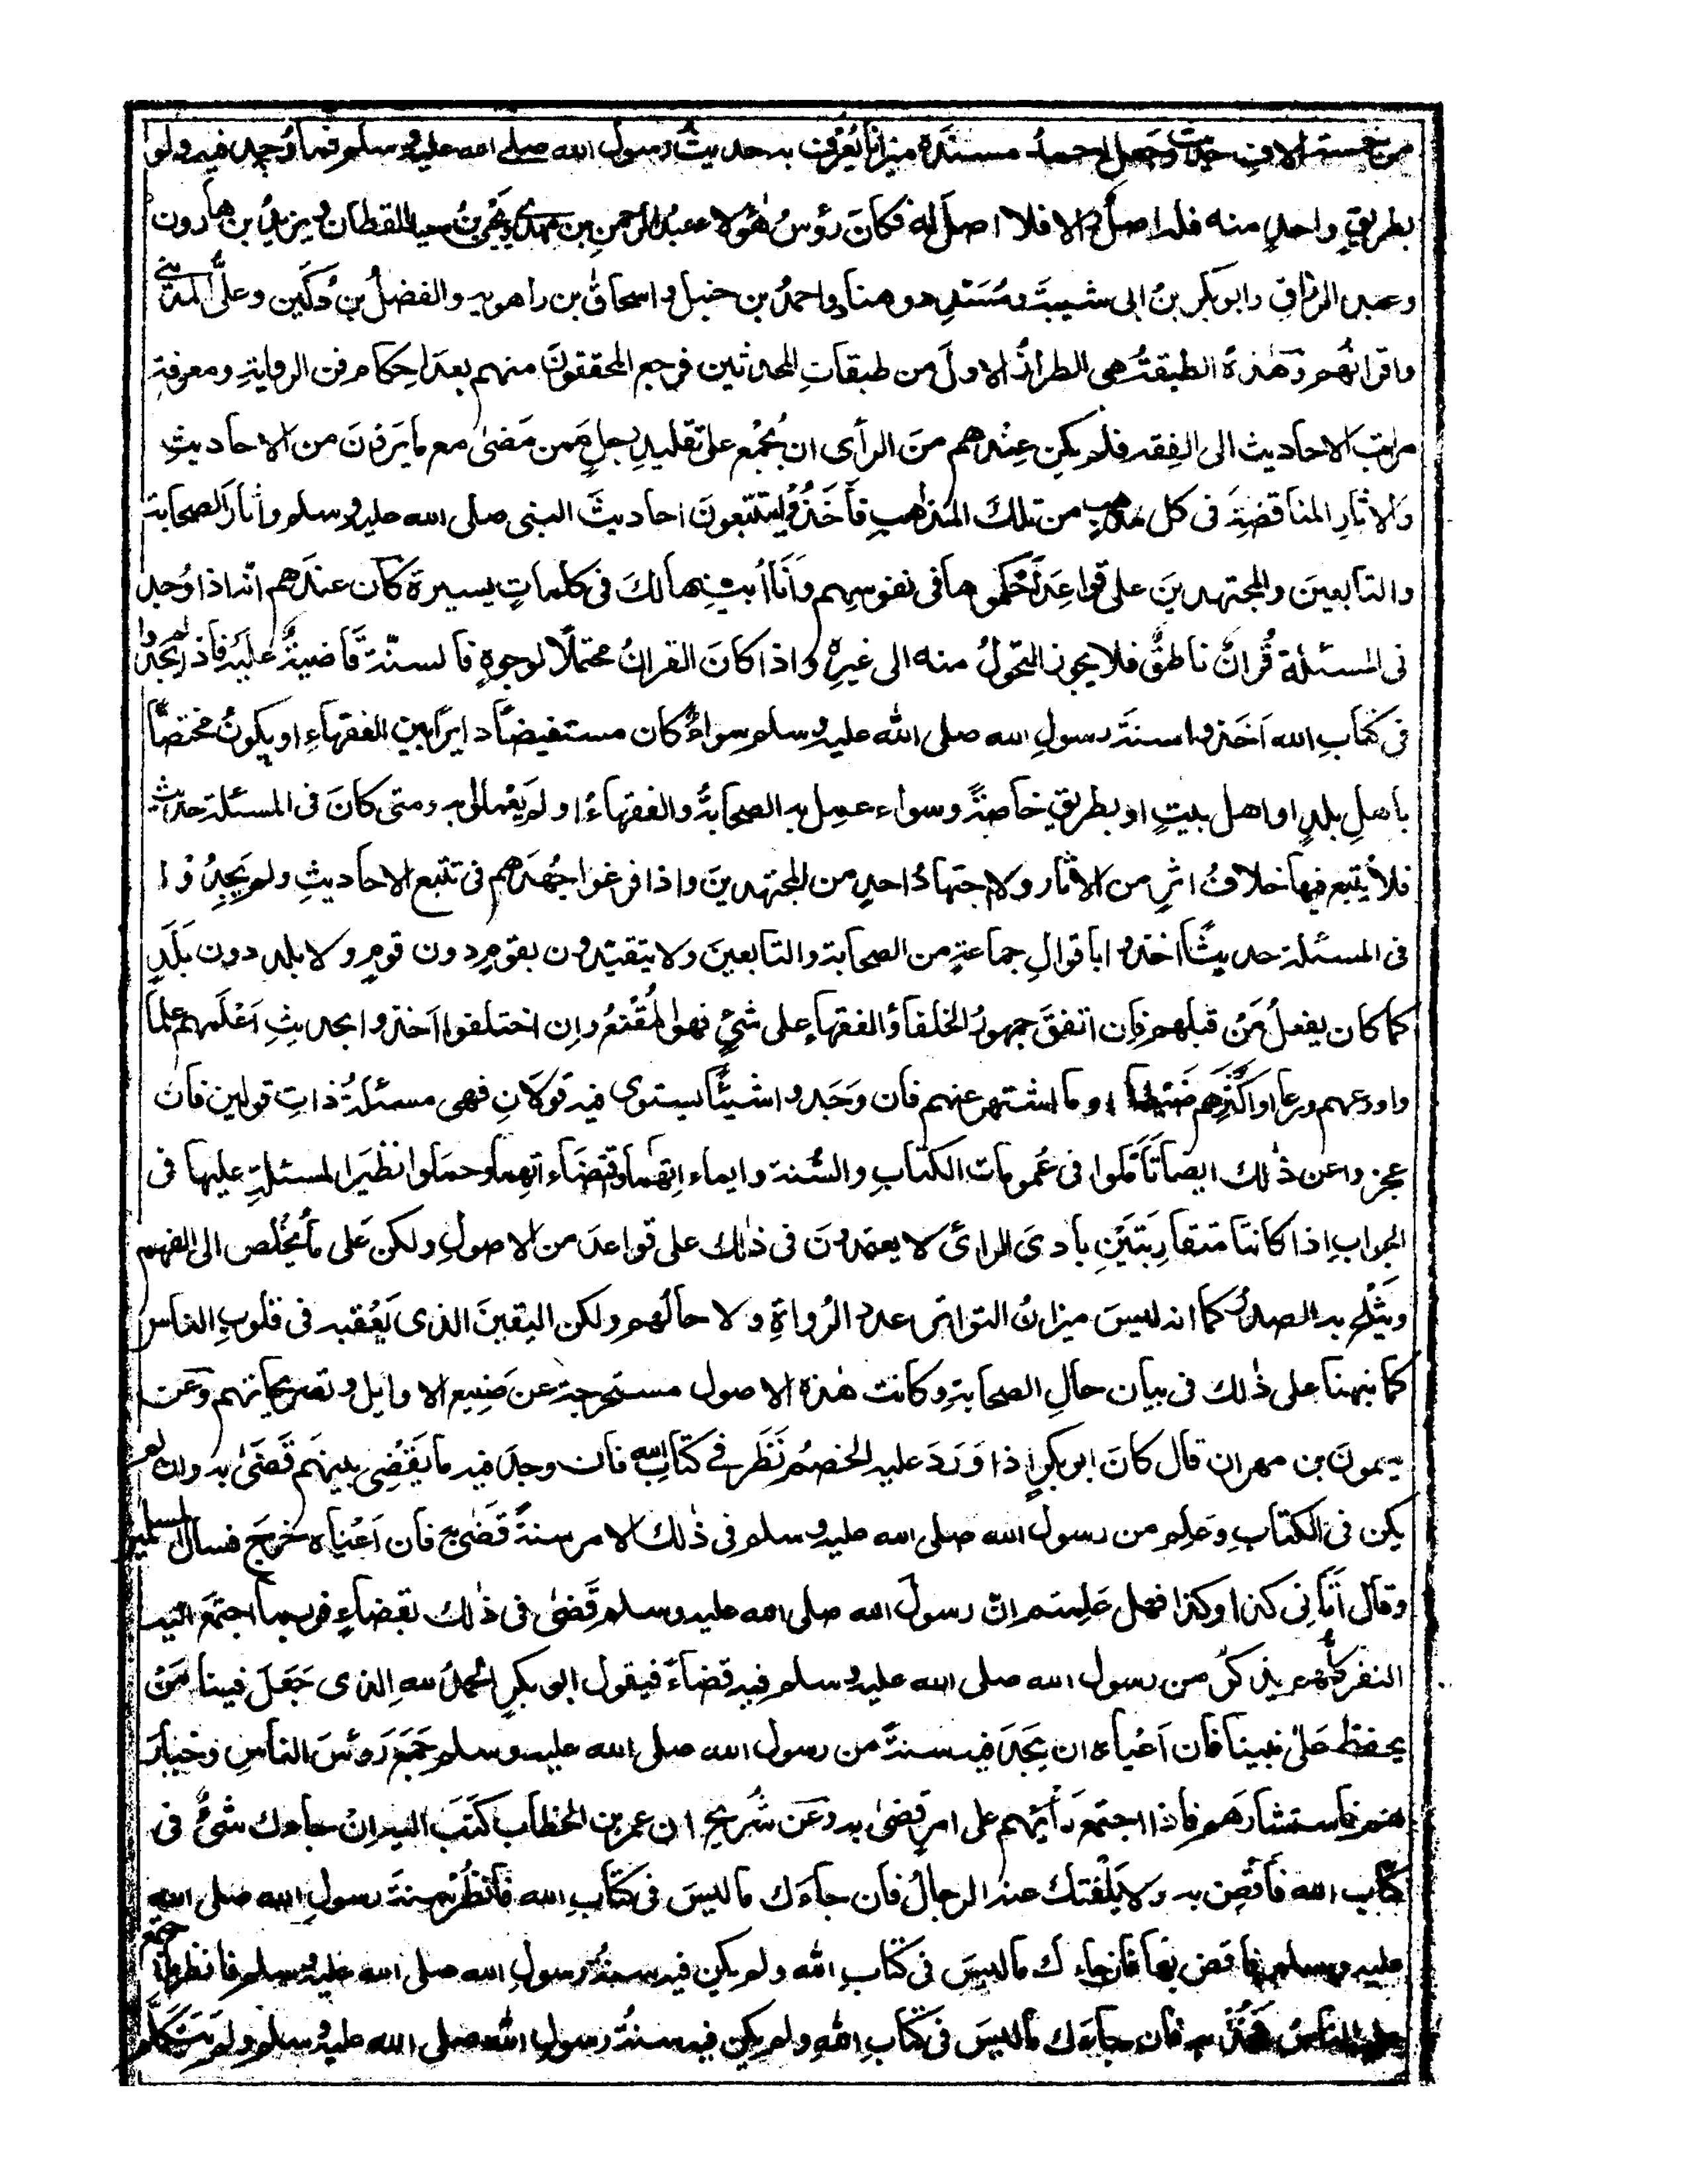 من خمسة الاف حديث وجعل احمد مسنده ميزانا يُعْرف به حديث رسول الله صلى الله عليه وسلم فما وُجِد فيه ولو
بطريقٍ واحدٍ منه فله اصلٌ والا فلا اصل له فكانَ رؤسُ هٰؤلاء عبدُ الرحمنِ بن مهدي ويحيى بنُ سعيد القطان ويزيدُ بن هارون
وعبد الرزاق وابو بكر بنُ ابى شيبةَ ومُسَدَّد وهناد واحمدُ بن حنبل واسحاقُ بن راهويه والفضلُ بنُ دُكَين وعلىُّ المدينى
واقرانُهم وَهٰذه الطبقةُ هى الطرازُ الاولَ من طبقاتِ المحدثين فرجع المحققونَ منهم بعدَ احِكام فن الرواية ومعرفةِ
مراتب الاحاديث الى الفِقه فلم يكن عِنْدهم منَ الرأى ان يُجْمَع على تقليدِ رجلٍ ممن مَضىٰ مع ما يَرَونَ من الاحاديثِ
وَالاثارِ المناقضةِ فى كل مذهبٍ من تلك المذاهبِ فأَخَذُوا يتتبعونَ احاديثَ النبى صلى الله عليه وسلم وأثارَ الصحابة
والتابعينَ والمجتهدينَ على قواعِدَ اَحْكموها فى نفوسِهم وَأَنَا أُبيِّنها لكَ فى كلماتٍ يسيرة كان عندَهم انّه اذا وُجد
فى المسئلة قُرانٌ ناطقٌ فلا يجوز التحّولُ منه الى غيرِهٖ واذا كانَ القرانُ محتملًا لوجوهٍ فالسنّة قَاضيةٌ عليه فاذا لم يجدوا
فى كتابِ الله اَخَذوا سنةَ رسولِ الله صلى الله عليه وسلم سواءٌ كان مستفيضاً دايرًا بين الفقهاءِ او يكونُ مختصًّا
باهلِ بلدٍ او اهل بيتٍ او بطريقٍ خاصةً وسواء عمِل به الصحابةُ والفقهاءُ او لم يَعْملوا به ومتى كانَ فى المسئلة حديث
فلا يتبع فيها خلافُ اثرٍ من الاثار ولا اجتهادُ احدٍ من المجتهدينَ واذا فرغوا جُهدَهم فى تتبع الاحاديثِ ولم يَجِدُوا
فى المسئلة حديثًا اخذوا باقوالِ جماعةٍ من الصحابة والتابعينَ ولا يتقيّدون بقومٍ دون قومٍ ولا بلد دون بَلَدٍ
كما كان يفعلُ مَنْ قبلهم فإن اتفقَ جمهورُ الخلفاءِ والفقهاءِ على شئٍ فهو المُقْنَعُ وإن اختلفوا اَخذوا بحديثِ اَعْلَمِهم علمًا
واورعهم ورعا او اكثَرِهم ضبطا او ما اشتهر عنهم فان وَجَدوا شيئًا يستوى فيه قولَانِ فهى مسئلةٌ ذاتِ قولين فان
عجزوا عن ذٰلك ايضا تَأَمَّلوا فى عُمومات الكتابِ والسُّنة وايماءاتِهما واقتضاءاتهما وحملوا نظيرَ المسئلةِ عليها فى
الجوابِ اذا كانتا مُتقارِبَتَيْنِ بادىَ الرائ لا يعتمدونَ فى ذٰلك على قواعدَ من الاصولِ ولكن عَلى ما يخْلُص الى الفهم
ويَثْلج به الصدرُ كما انه ليسَ ميزانُ التواتر عددَ الرُواةِ ولا حالُهم ولكن اليقينَ الذى يَعْقبه فى قلوبِ الناس
كما نبهنا على ذٰلك فى بيان حالِ الصحابةِ وكانت هٰذه الاصول مستخرجة عن صَنِيع الاوايل وتصريحاتهم وَعن
ميمونَ بن مهران قال كانَ ابو بكرٍ اذا وَرَدَ عليه الخصمُ نَظَر فى كتابِ الله فان وجدَ فيه ما يَقْضِى بينَهم قَضَىٰ به وان لم
يكن فى الكتابِ وَعَلِم من رسول الله صلى الله عليه وسلم فى ذٰلك الامر سنةً قَضٰى بها فان اَعْيَاه خرجَ فسال المسلمين
وقال أتانى كذا وكذا فهل عَلِمتم انّ رسولَ الله صلى الله عليه وسلم قَضىٰ فى ذٰلك بقضاءٍ فربما اجتمعَ اليه
النفر كلُّهم يذكرُ من رسول الله صلى الله عليه وسلم فيه قضاءً فيقول ابو بكرٍ الحمدُ للهِ الذى جَعَلَ فينا مَنْ
يحفظ عَلىٰ نبينا فان اَعْياه ان يجَدَ فيه سنةً من رسول الله صلى الله عليه وسلم جَمَعَ رؤسَ الناسِ وخيارَ
هم فاستشارَهم فاذا اجتمعَ رأيُهم على امرٍ قضىٰ به وَعَن شُريح ان عمر بن الخطاب كَتَبَ اليه انْ جاءك شئٌ فى
كتاب الله فَأقْضِ به ولا يَلْفتكَ عنه الرجالُ فان جاءَك ما ليسَ فى كتابِ الله فأنظُرْ سنةَ رسولِ الله صلى الله
عليه وسلم فاقض بها فان جاءك ما ليسَ فى كتابِ الله ولم يكن فيه سنةُ رسولِ الله صلى الله عليه وسلم فانظر ما اجتمع
عليه الناسُ فخُذْ به فان جاءَك ما ليسَ فى كتابِ اللهِ ولم يكن فيه سنةُ رسولِ اللهِ صلى الله عليه وسلم ولم يَتَكَلَّم